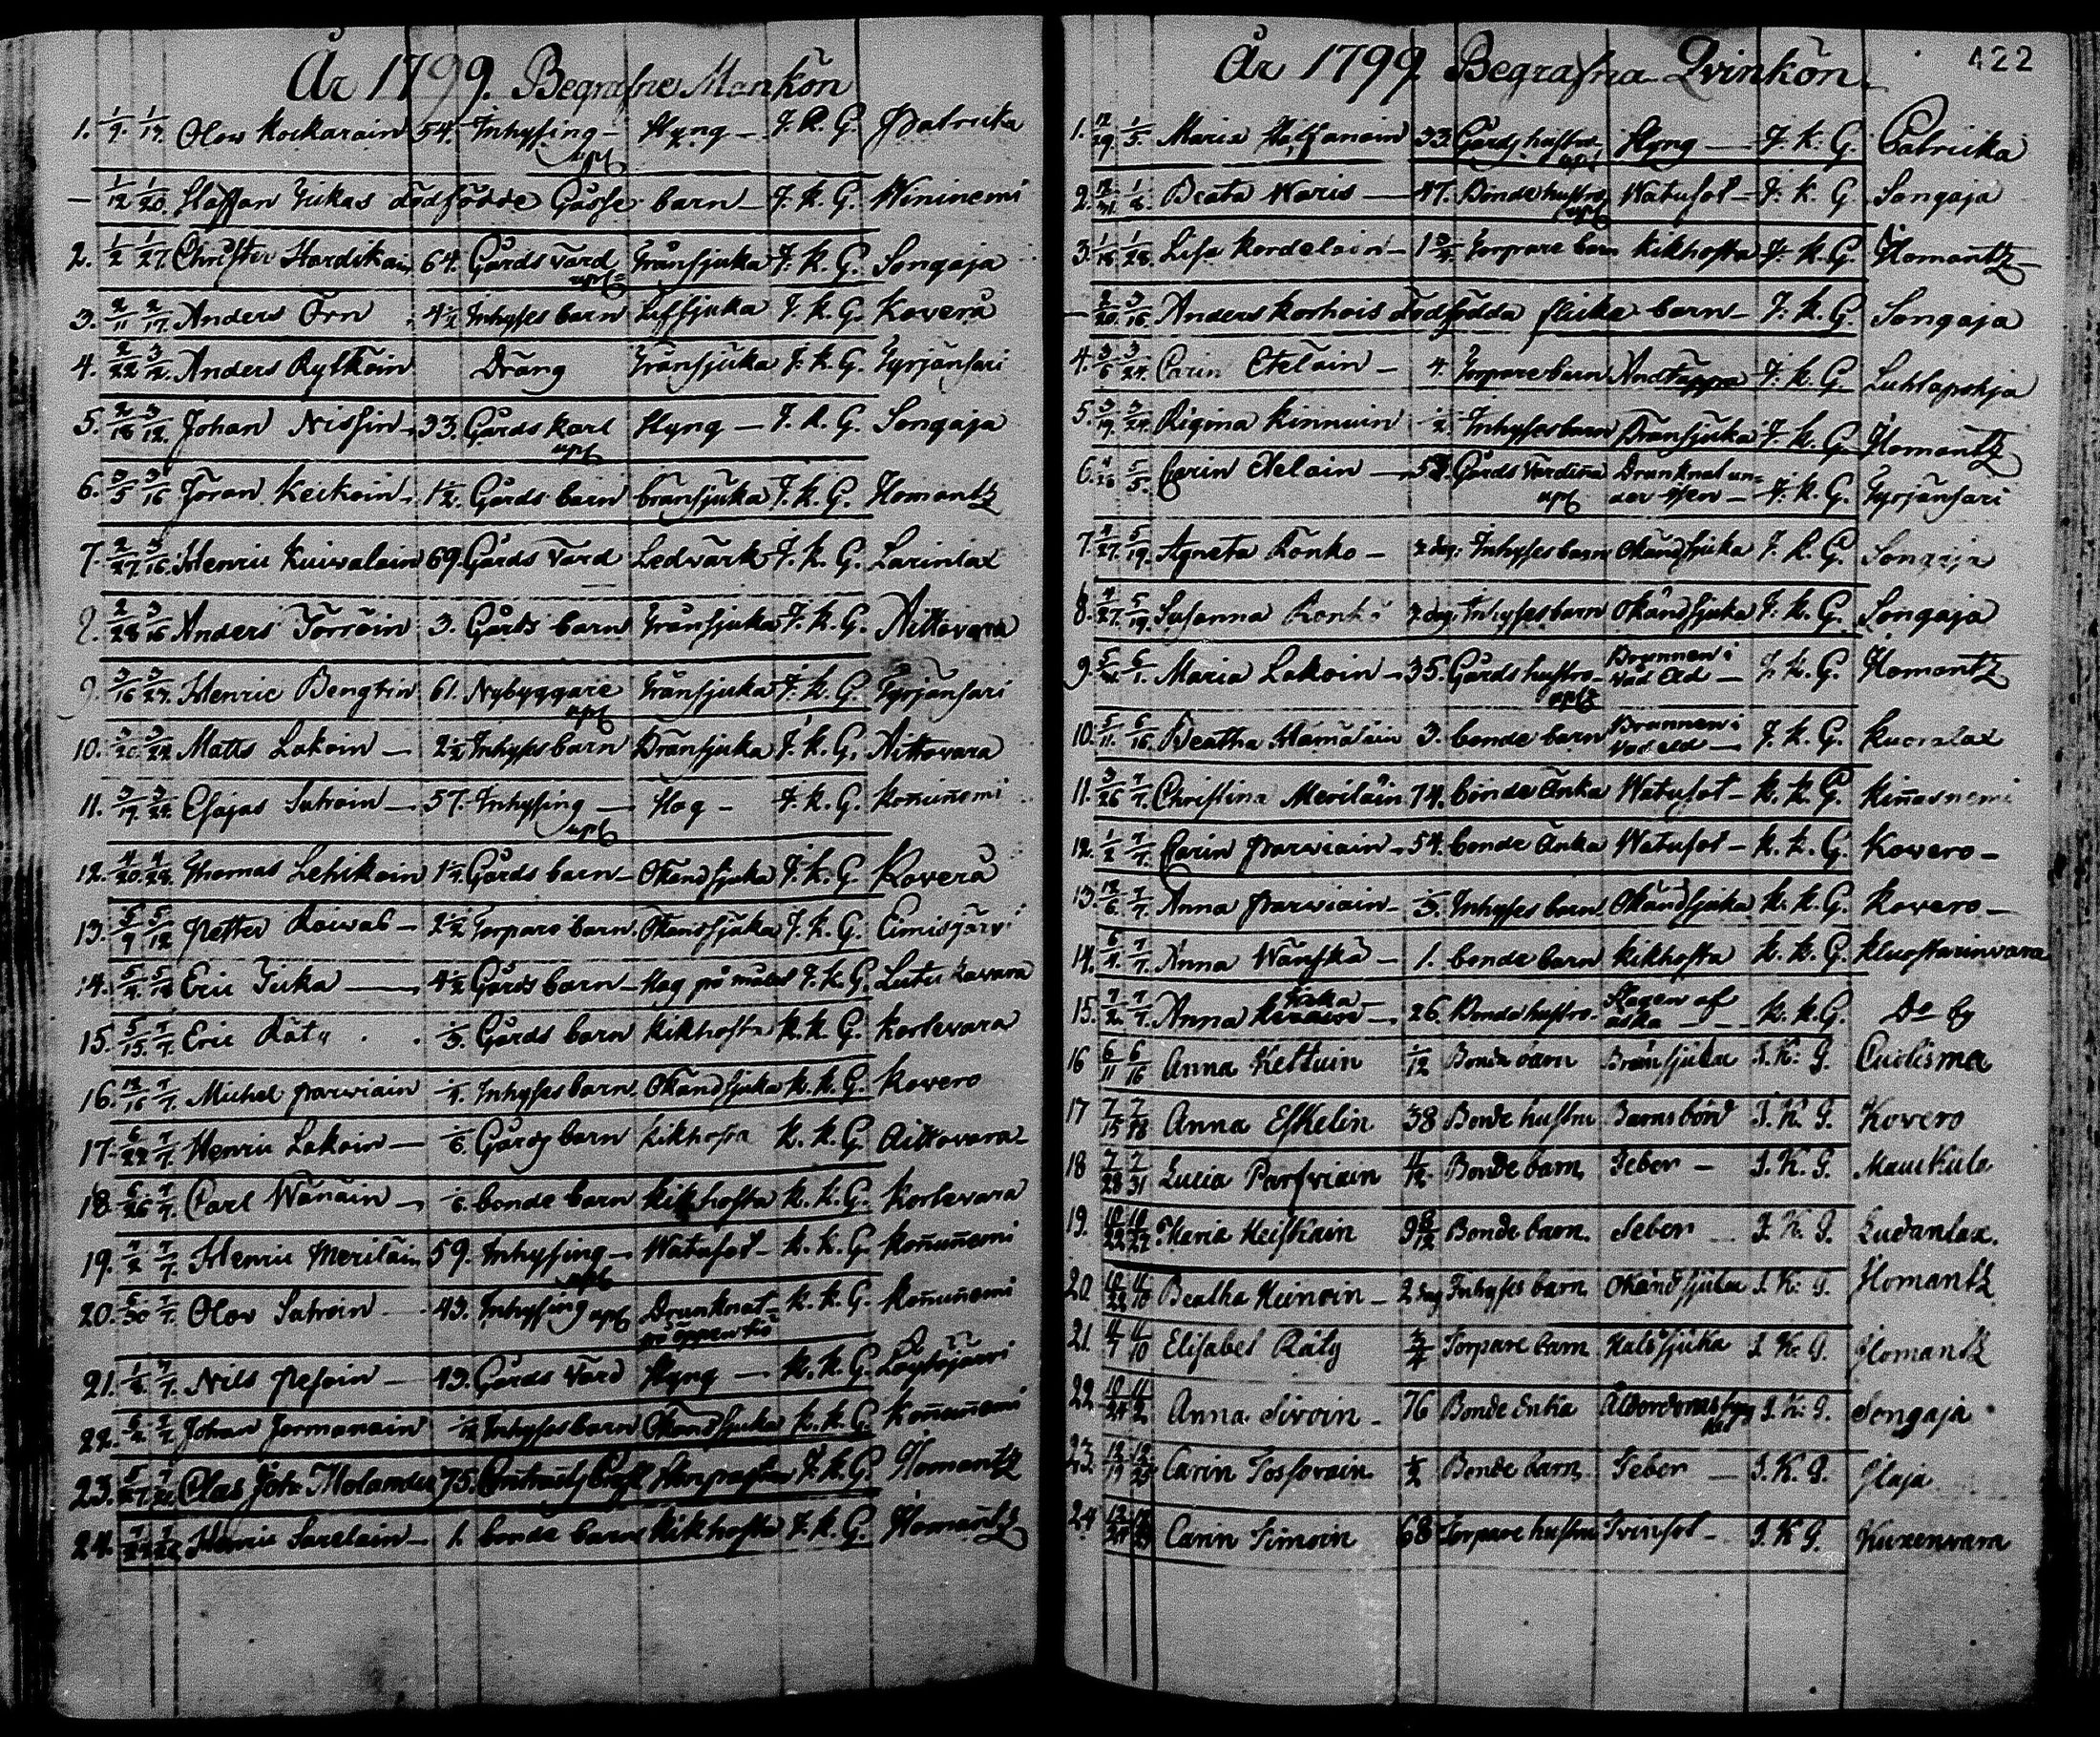 År 1799. Begrafne Mankön
1. 1/9. 1/13. Olov Kockarain 54. Inhysing upl Styng - J. K. G. Patricka
- 1/12 1/20. Staffan Jukas dödfödde Gosse barn - J. K. G. Wininemi
2. 1/2 1/27. Christer Hardikain 64. Gårds värd upl Trånsjuka J. K. G. Songaja
3. 2/11 2/17. Anders Örn 4 1/2 Inhyses barn J. K. G. Kovera
4. 2/22 3/2. Anders Rytkoin Dräng Trånsjuka J. K. G. Tyrjänsari
5. 2/18 3/12. Johan Nissin 33. Gårds karl upl Styng - J. K. G. Songaja
6. 3/5 3/16 Jöran Keikoin 1 1/2. Gårds barn bränsjuka J. K. G. Ilomantz
7. 2/27. 3/16. Henric Kuivalain 69. Gårds Värd Ledvärk J. K. G. Larinlax
8. 2/28 3/16 Anders Torroin 3. Gårds barn Trånsjuka J. K. G. Aittovara
9. 3/16 3/24. Henric Bengtin 61. Nybyggare upl Trånsjuka J. K. G. Tyrjänsari
10. 3/20. 3/24. Matts Lakoin - 2 1/2 Inhyses barn Bränsjuka J. K. G. Aittovara
11. 3/19 3/24. Esajas Sutroin - 57. Inhysing - upl Håg - J. K. G. Koñuñemi
12. 4/20. 4/28. Thomas Lehikoin 1 1/4. Gårds barn - Okänd sjuka J. K. G. Kovera
13. 5/9 5/12 Petter Raivas - 2 1/2 Torpare barn Okänd sjuka J. K. G. Eimisjärvi
14. Eric Juka - 4 1/2 Gårds barn - Hag på målet J. K. G. Lutukavara
15. 5/15. 7/7. Eric Räty 1/3. Gårds barn Kikhosta K. K. G. Korkevara
16. 12/16 7/7. Michel Parviain 1/4. Inhyses barn. Okänd sjuka K. K. G. Kovero
17. 6/22 7/7. Henric Lakoin - 1/6. Gårds barn Kikhosta K. K. G. Aittovara
18. 6/26 7/7. Carl Wänäin - 1/6. bonde barn Kikhosta K. K. G. Korkevara
19. 4/2 7/7. Henric Meriläin 59. Inhysing - upl Watusot - K. K. G. Koñuñemi
20. 6/30 7/7. Olov Sutroin - 43. Inhysing upl Drunknat på öppen siö K. K. G. Koñuñemi
21. 1/8. 7/7. Nils Pesoin - 43. Gårds Värd Styng - K. K. G. Löytöjärvi
22. Johan Jormanain Inhyses barn Okänd sjuka K. K. G. Koñuñemi
23. Clas Joh: Molander 75. J. K. G. Ilomantz
24. Henric Sarelain - 1. bonde barn Kikhosta J. K. G. Ilomantz
År 1799. Begrafna Qvinkön.
422
1. 12/29 1/5. Maria Staffanain 33. Gårds hustru upl Styng - J. K. G. Patricka
2. 12/31 1/6. Beata Waris - 47. Bonde hustru upl Watusot - J. K. G. Songaja
3. 1/18 1/28. Lisa Kordelain - 1 3/4. Torpare barn Kikhosta J. K. G. Ilomantz
- 2/20. 3/16. Anders Korhois dödfödda flicke barn - J. K. G. Songaja
4. 3/6 3/24. Carin Etelain - 4. Torpare barn Andtäppa J. K. G. Luhtapohja
5. 3/19. 3/24. Rigina Kinnuin 1/2. Inhyses barn Bränsjuka J. K. G. Ilomantz
6. 4/28 5/5. Carin Etelain - Gårds Värdiña upl Drunknat un- der Isen - J. K. G. Tyrjänsari
7. 4/27. 5/19. Agneta Ronko - 2 dag. Inhyses barn Okänd sjuka J. K. G. Songaja
8. 4/27. 5/19. Susanna Ronko 2 dag. Inhyses barn Okänd sjuka J. K. G. Songaja
9. Maria Lakoin - 35. Gårds hustru upl Brunnen i Våd Eld - J. K. G. Ilomantz
10. 5/11. 6/16. Beatha Hämäläin 3. bonde barn Brunnen i Våd eld - J. K. G. Kuoralax
11. 3/26 7/7. Christina Meriläin 74. bonde Änka Watusot - K. K. G. Kiñasnemi
12. 1/2 7/7. Carin Parviain 54. bonde Änka Watusot - K. K. G. Kovero -
13. 12/6. 7/7. Anna Parviain - 1/3. Inhyses barn Okänd sjuka K. K. G. Kovero -
14. 6/4. 7/7. Anna Wänskä - 1. bonde barn Kikhosta K. K. G. Kluostarinvara
15. 7/2. 7/7. Anna - 26. Bonde hustru Slagen af åska - K. K. G. Do By
16 6/11 6/16 Anna Kettuin 1/12 Bonde barn Bränsjuka J. K. G. Cuolisma
17 7/15 7/18 Anna Eskelin 38 Bonde hustru Barns börd J. K. G. Kovero
18 7/28 7/31 Lucia Parfviain Bonde barn Feber - J. K. G. Maukula
19. 10/22 10/27 Maria Heiskain 9 8/12 Bonde barn. Feber - J. K. G. Ludanlax.
20 10/22 11/10 Beatha Heinoin - 2 dag Inhyses barn Okänd sjuka J. K. G. Ilomantz
21. 11/7 11/10 Elisabet Räty 3/4 Torpare barn Halssjuka J. K. G. Ilomantz
22. Anna Sivoin - 76 Bonde Enka Ålderdoms J. K. G. Songaja
23. Carin Tossavain 1/2 Bonde barn Feber - J. K. G. Ilaja
24 Carin Timoin 68 Torpare hustru Tvinsot - J. K. G. Kuxenvara